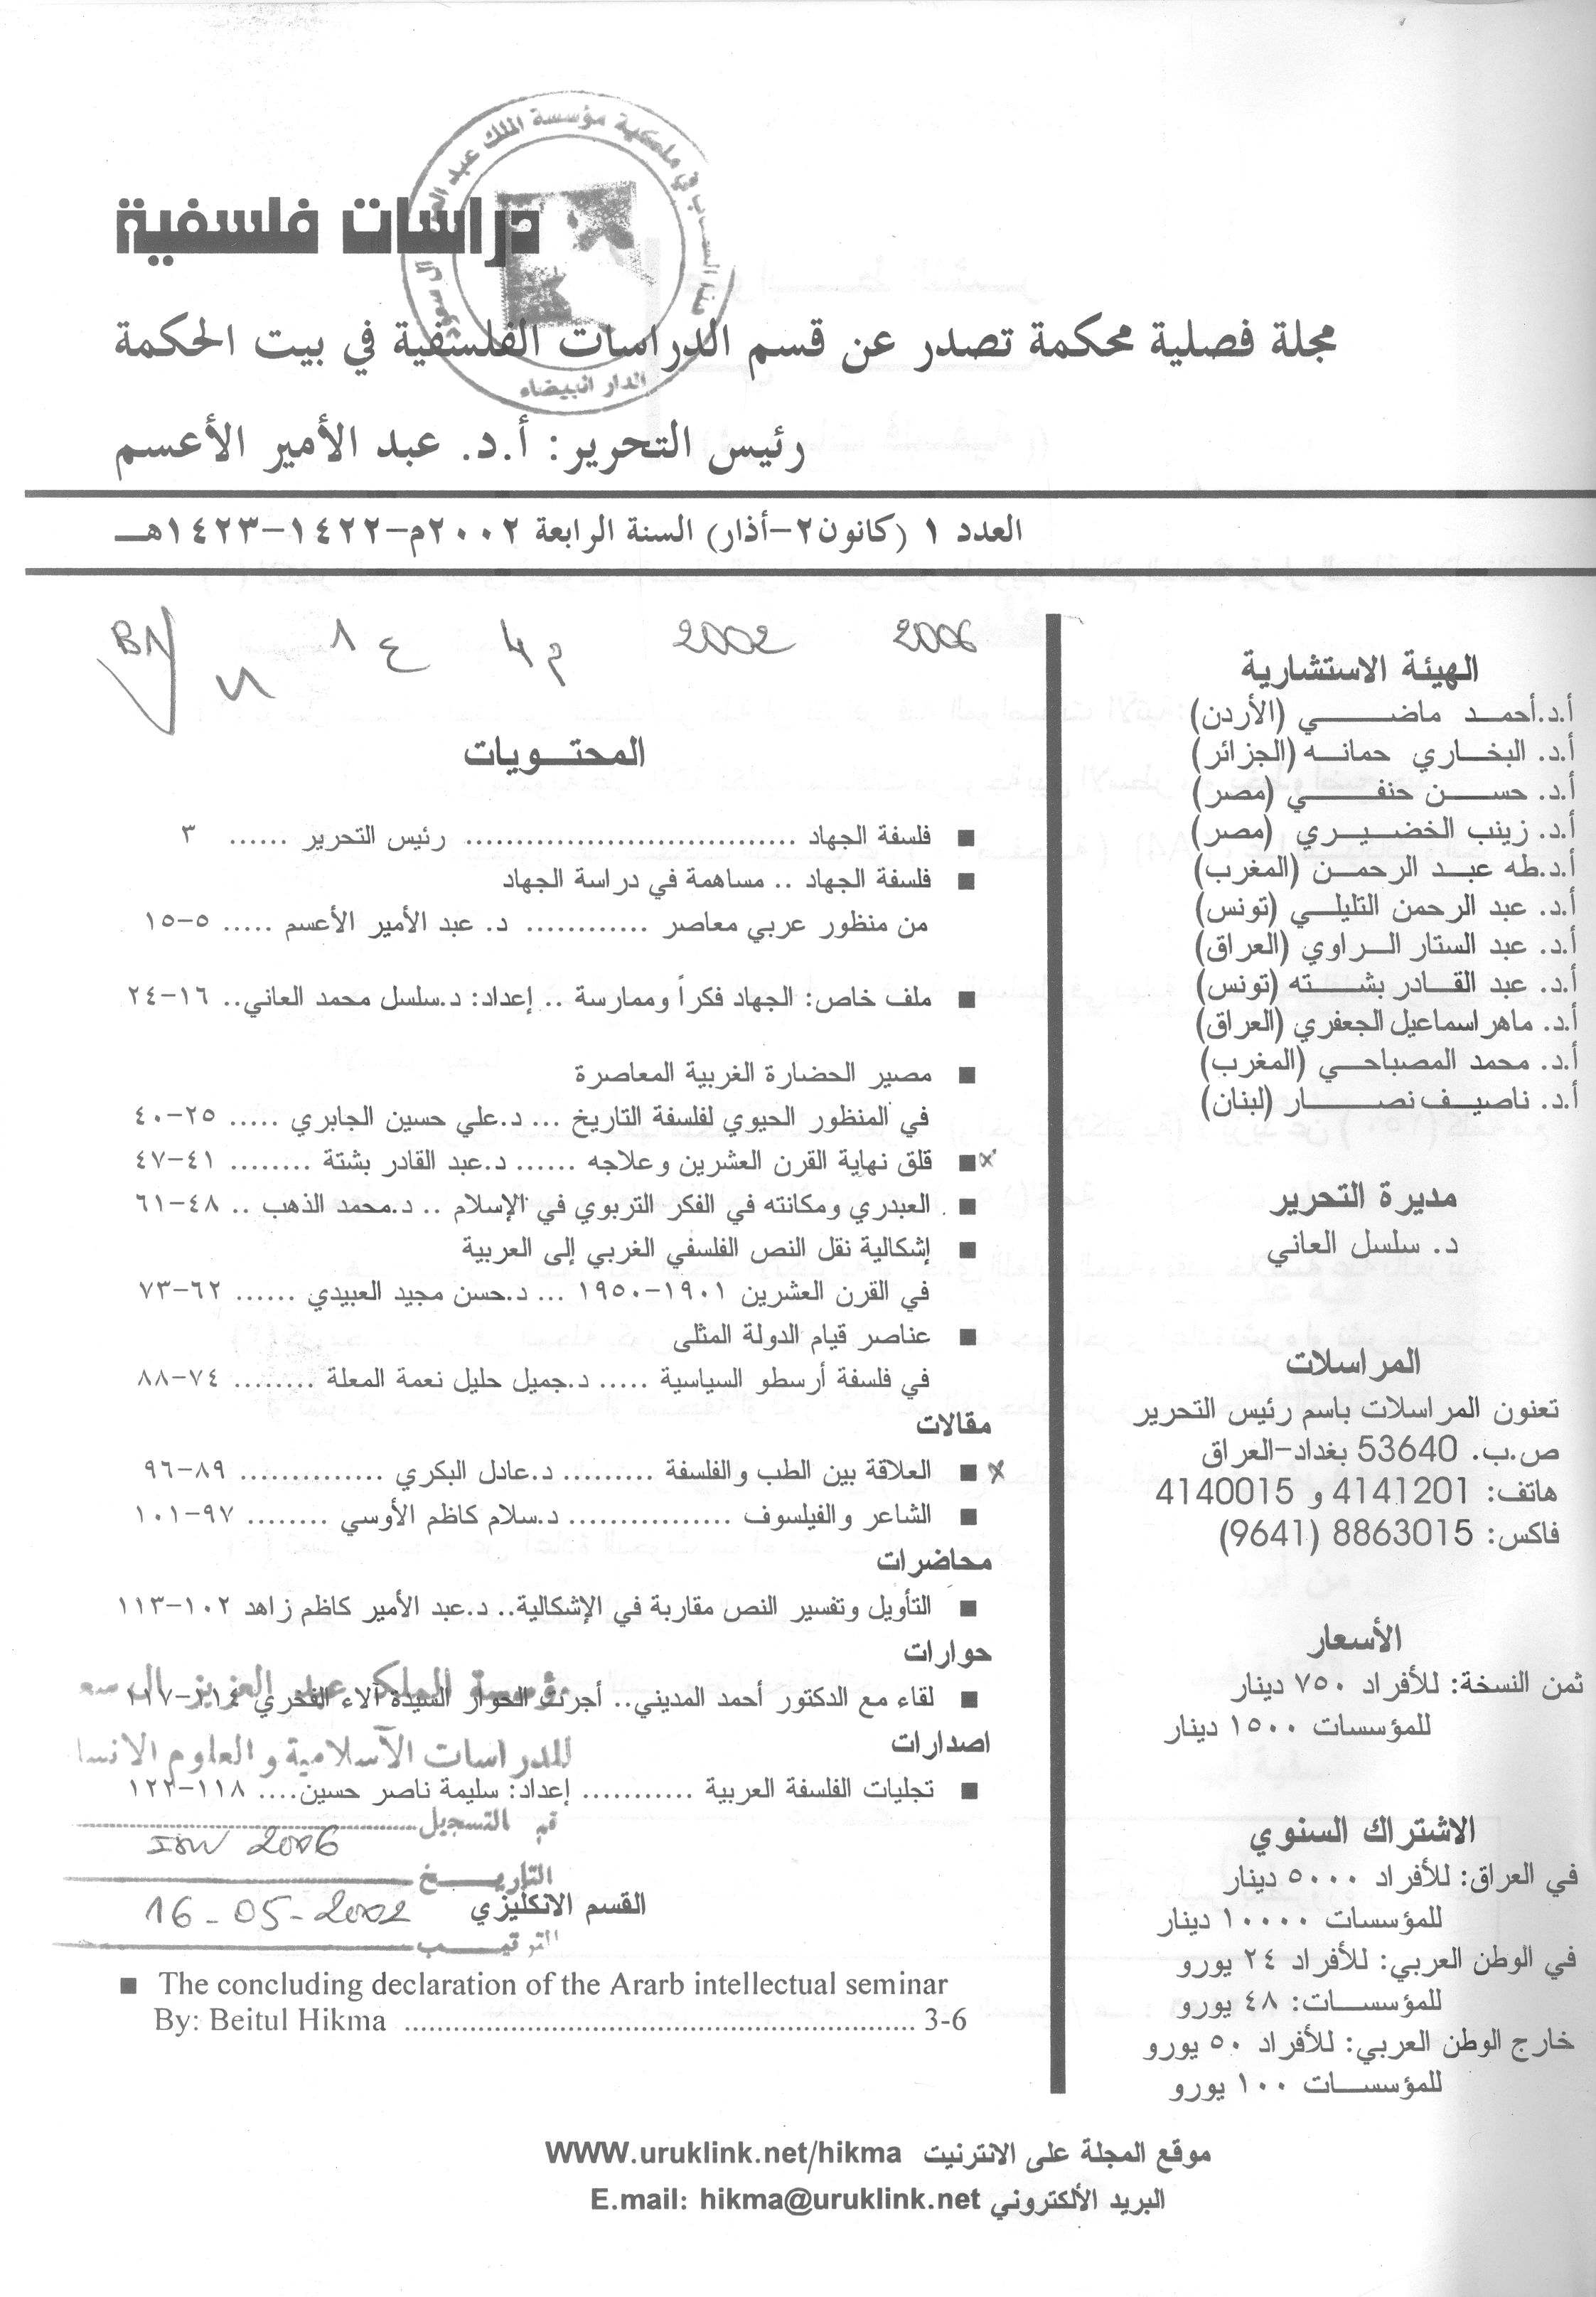 دراسات فلسفية
مجلة فصلية محكمة تصدر عن قسم الدراسات الفلسفية في بيت الحكمة
رئيس التحرير: أ.د. عبد الأمير الأعسم
العدد ١ (كانون٢-أذار) السنة الرابعة ٢٠٠٢م-١٤٢٢-١٤٢٣هـ
الدار البيضاء
2006 2002
الهيئة الاستشارية
أ.د.أحمد ماضي (الأردن)
أ.د. البخاري حمانه (الجزائر)
أ.د. حسن حنفي (مصر)
أ.د. زينب الخضيري (مصر)
أ.د.طه عبد الرحمن (المغرب)
أ.د. عبد الرحمن التليلي (تونس)
أ.د. عبد الستار الراوي (العراق)
أ.د. عبد القادر بشته (تونس)
أ.د. ماهر اسماعيل الجعفري (العراق)
أ.د. محمد المصباحي (المغرب)
أ.د. ناصيف نصار (لبنان)
مديرة التحرير
د. سلسل العاني
المراسلات
تعنون المراسلات باسم رئيس التحرير
ص.ب. 53640 بغداد-العراق
هاتف: 4141201 و 4140015
فاكس: 8863015 (9641)
الأسعار
ثمن النسخة: للأفراد ٧٥٠ دينار
للمؤسسات ١٥٠٠ دينار
الاشتراك السنوي
في العراق: للأفراد ٥٠٠٠ دينار
للمؤسسات ١٠٠٠٠ دينار
في الوطن العربي: للأفراد ٢٤ يورو
للمؤسسات: ٤٨ يورو
خارج الوطن العربي: للأفراد ٥٠ يورو
للمؤسسات ١٠٠ يورو
المحتويات
■ فلسفة الجهاد ................................ رئيس التحرير ...... ٣
■ فلسفة الجهاد .. مساهمة في دراسة الجهاد
من منظور عربي معاصر ............ د. عبد الأمير الأعسم ..... ٥-١٥
■ ملف خاص: الجهاد فكراً وممارسة .. إعداد: د.سلسل محمد العاني.. ١٦-٢٤
■ مصير الحضارة الغربية المعاصرة
في المنظور الحيوي لفلسفة التاريخ ... د.علي حسين الجابري ..... ٢٥-٤٠
■ قلق نهاية القرن العشرين وعلاجه ...... د.عبد القادر بشتة ........ ٤١-٤٧
■ العبدري ومكانته في الفكر التربوي في الإسلام .. د.محمد الذهب .. ٤٨-٦١
■ إشكالية نقل النص الفلسفي الغربي إلى العربية
في القرن العشرين ١٩٠١-١٩٥٠ ... د.حسن مجيد العبيدي ...... ٦٢-٧٣
■ عناصر قيام الدولة المثلى
في فلسفة أرسطو السياسية ..... د.جميل حليل نعمة المعلة ........ ٧٤-٨٨
مقالات
■ العلاقة بين الطب والفلسفة ......... د.عادل البكري .............. ٨٩-٩٦
■ الشاعر والفيلسوف ................ د.سلام كاظم الأوسي ........ ٩٧-١٠١
محاضرات
■ التأويل وتفسير النص مقاربة في الإشكالية.. د.عبد الأمير كاظم زاهد ١٠٢-١١٣
حوارات
■ لقاء مع الدكتور أحمد المديني.. أجرت الحوار السيدة آلاء الفخري ١١٤-١١٧
مؤسسة الملك عبد العزيز
للدراسات الاسلامية والعلوم
اصدارات
■ تجليات الفلسفة العربية ........... إعداد: سليمة ناصر حسين.... ١١٨-١٢٢
التسجيل
2006
التاريخ
16-05-2002
القسم الانكليزي
الترتيب
■ The concluding declaration of the Ararb intellectual seminar
By: Beitul Hikma ................................................................ 3-6
موقع المجلة على الانترنيت WWW.uruklink.net/hikma
البريد الألكتروني E.mail: hikma@uruklink.net